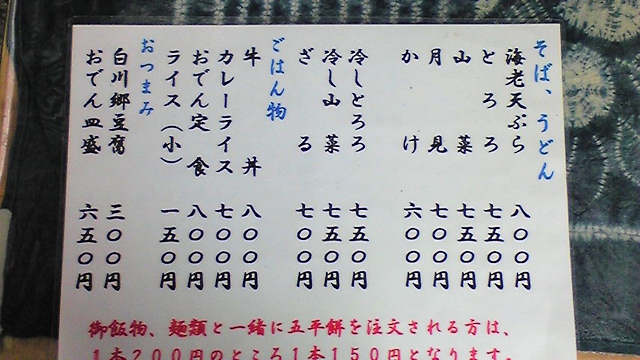 そば、うどん
海老天ぷら 八〇〇円
とろろ 七五〇円
山菜 七五〇円
月見 七〇〇円
かけ 六〇〇円
冷しとろろ 七五〇円
冷し山菜 七五〇円
ざる 七〇〇円
ごはん物
牛丼 八〇〇円
カレーライス 七〇〇円
おでん定食 八〇〇円
ライス(小) 一五〇円
おつまみ
白川郷豆腐 三〇〇円
おでん皿盛 六五〇円
御飯物、麺類と一緒に五平餅を注文される方は、
1本200円のところ1本150円となります。